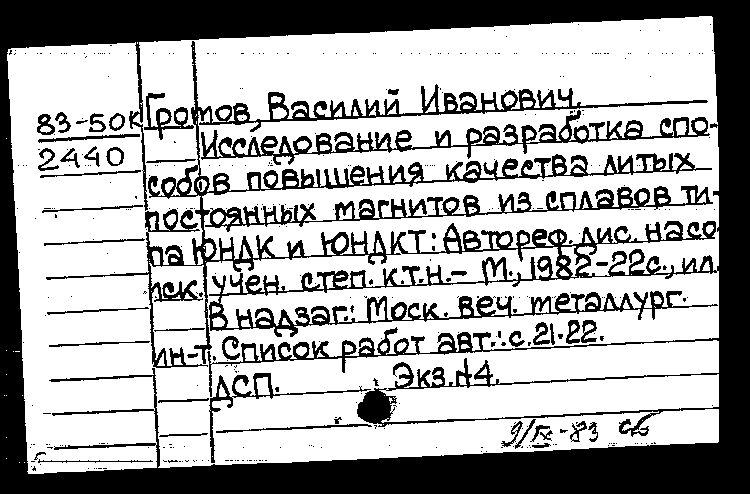 83-50к Громов, Василий Иванович.
2440 Исследование и разработка спо-
собов повышения качества литых
постоянных магнитов из сплавов ти-
па ЮНДК и ЮНДКТ: Автореф. дис. на со-
иск. учен. степ. к.т.н.- М., 1982.-22с., ил.
В надзаг.: Моск. веч. металлург.
ин-т. Список работ авт.: с.21-22.
ДСП. Экз.№4.
9/IX-83